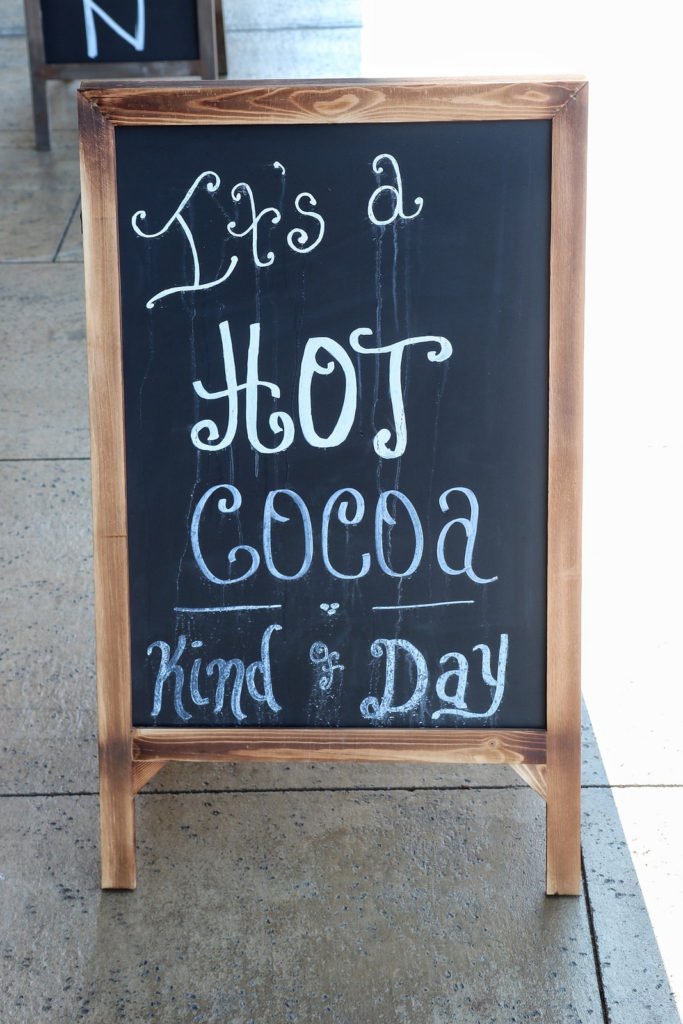 N
It's a
HOT
COCOA
Kind of Day